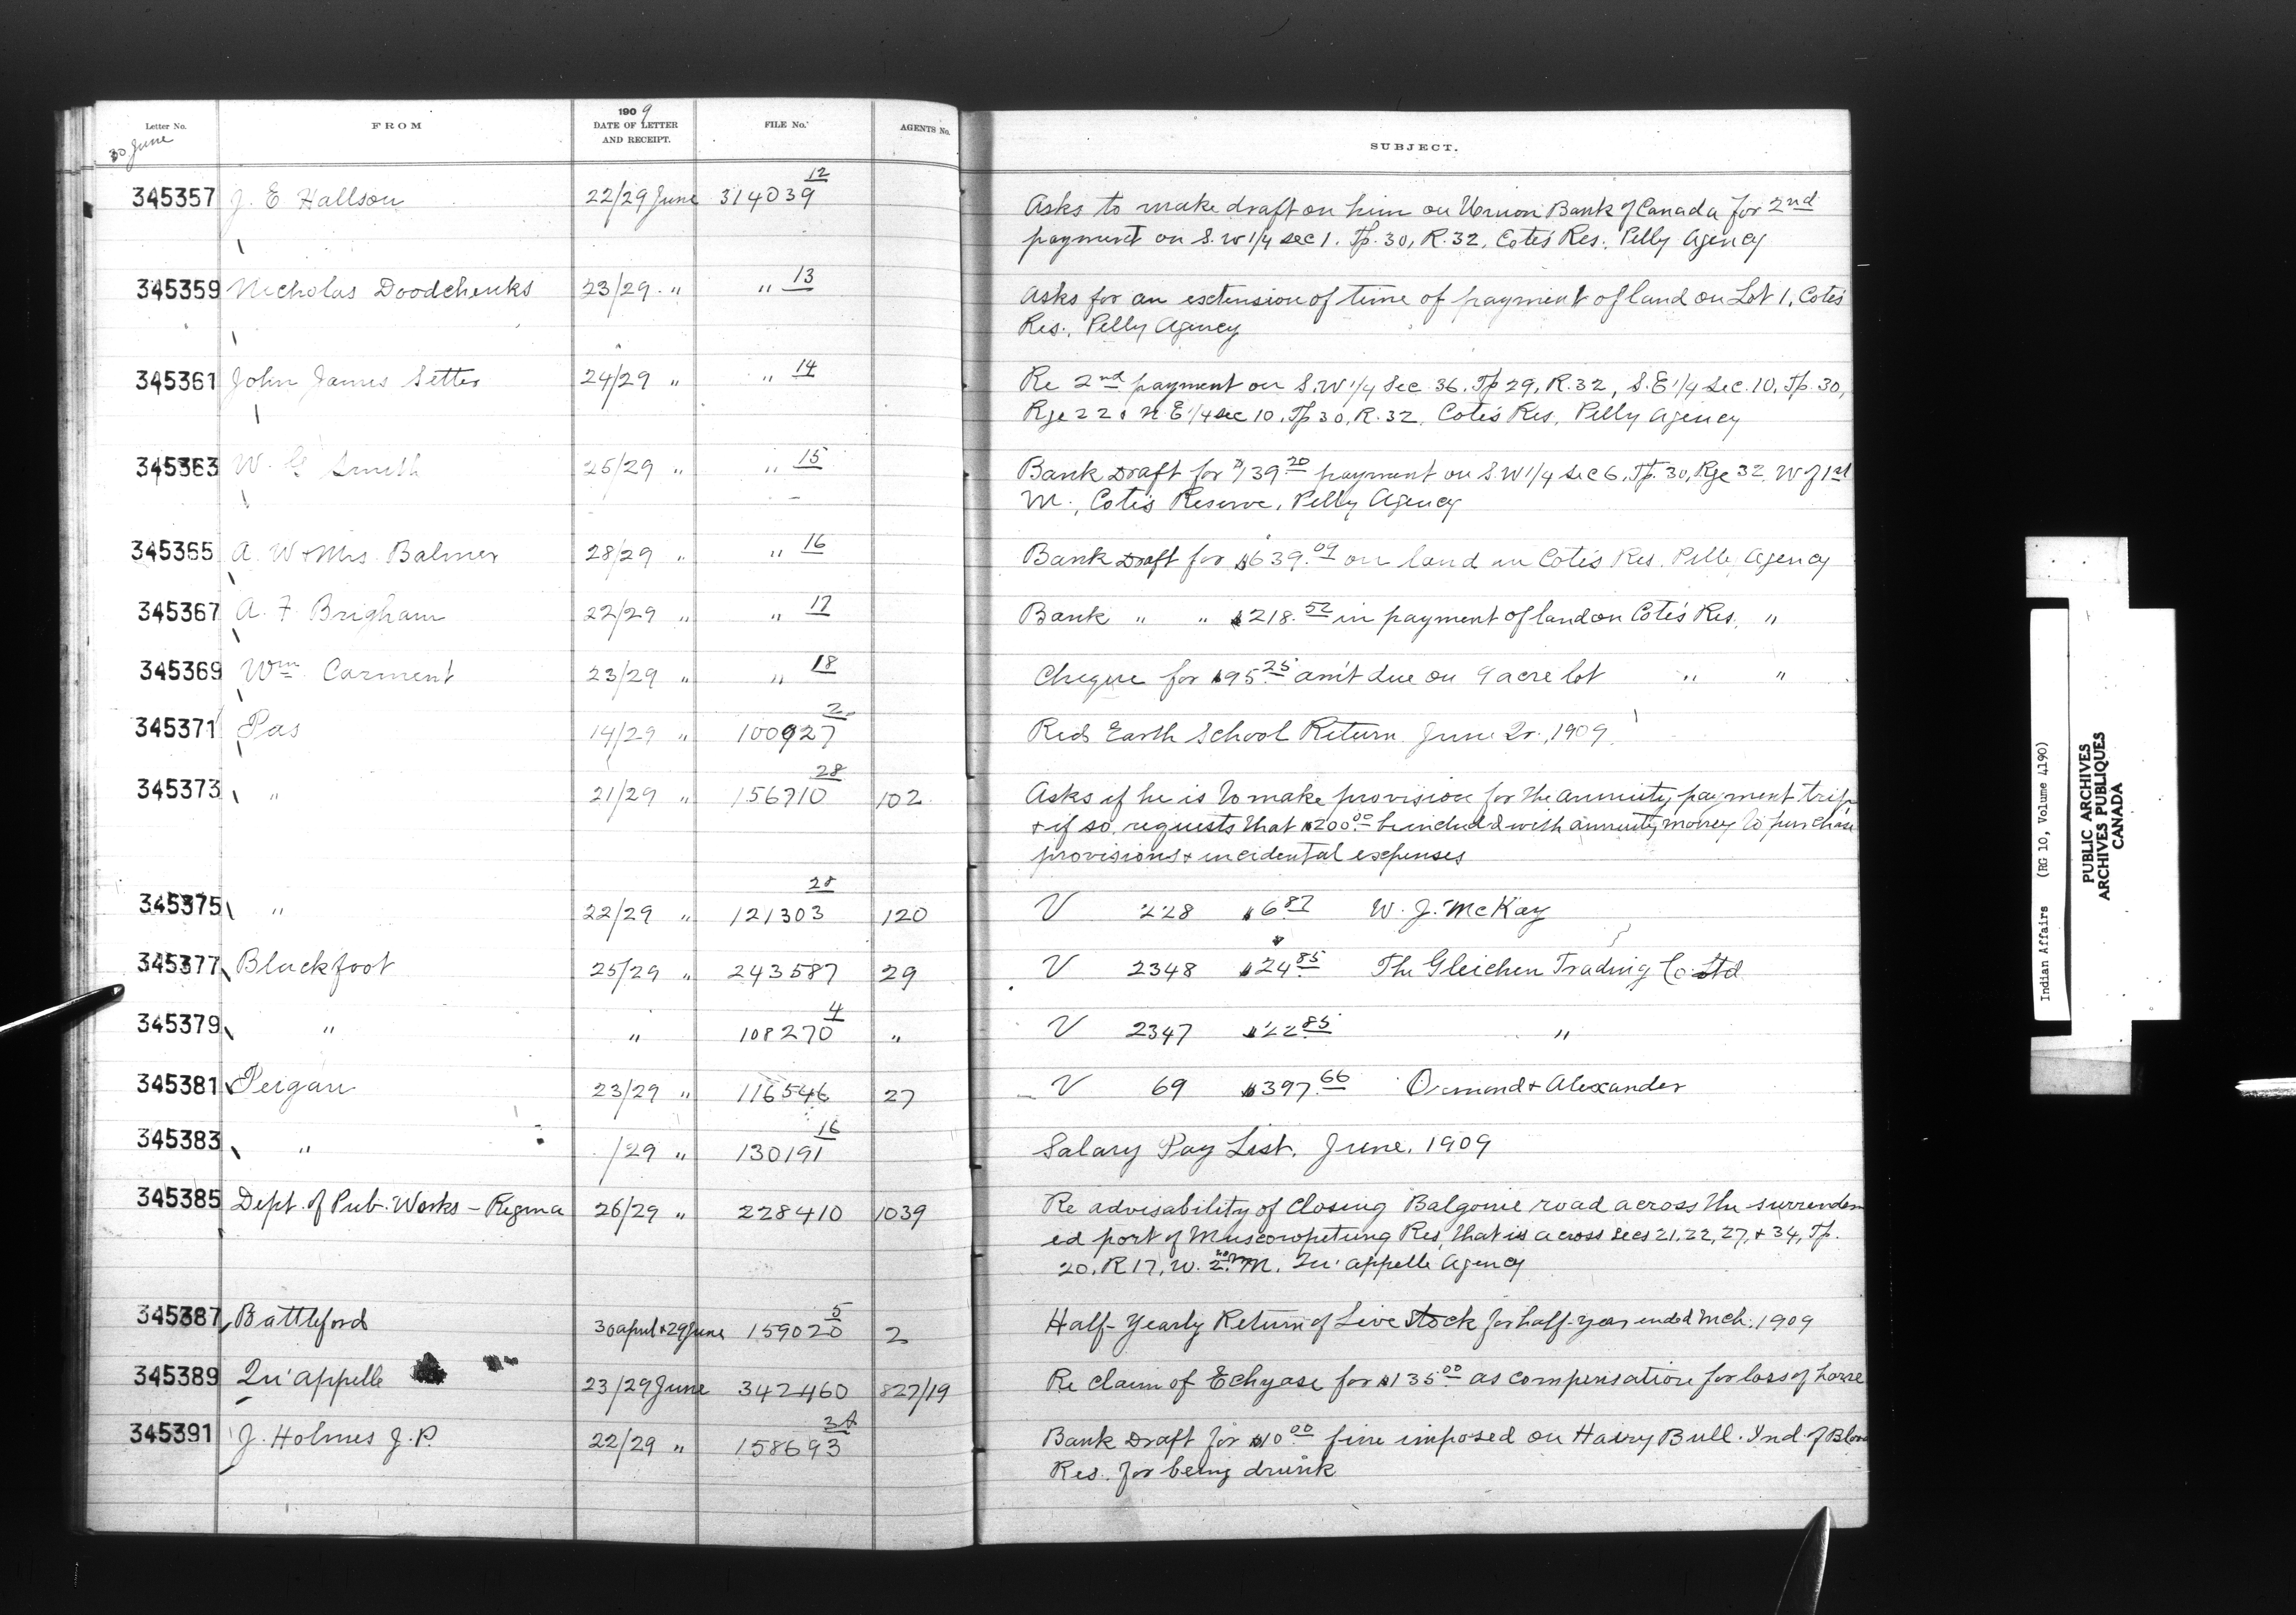 Letter No. FROM 1909 DATE OF LETTER AND RECEIPT. FILE No. AGENTS No. SUBJECT.
30 June
345357 J. E Hallson 22/29 June 314039 12 Asks to make draft on him on Union Bank of Canada for 2nd
payment on S.W 1/4 sec 1. Tp. 30, R. 32, Cote's Res. Pelly Agency
345359 Nicholas Doodchenks 23/29 " " 13 Asks for an extension of time of payment of land on Lot 1, Cote's
Res., Pelly Agency
345361 John James Setter 24/29 " " 14 Re 2nd payment on S.W 1/4 Sec. 36. Tp 29, R. 32, S.E 1/4 Sec. 10. Tp. 30,
Rge 22 & N.E 1/4 sec 10. Tp 30, R. 32, Cote's Res. Pelly Agency
345363 W. G Smith 25/29 " " 15 Bank Draft for $139.20 payment on S.W 1/4 sec 6, Tp. 30, Rge 32 W of 1st
M., Cote's Reserve, Pelly Agency
345365 A. W & Mrs. Balmer 28/29 " " 16 Bank Draft for $639.09 on land in Cote's Res. Pelly Agency
345367 A. F. Brigham 22/29 " " 17 Bank " " $218.52 in payment of land on Cote's Res. "
345369 Wm Carment 23/29 " " 18 Cheque for $95.25 am't due on 9 acre lot " "
345371 Pas 14/29 " 100927 2 Red Earth School Return June Qr., 1909
345373 " 21/29 " 156710 28 102 Asks if he is to make provision for the annuity payment trip
& if so, requests that $200.00 be included with annuity money to purchase
provisions & incidental expenses
345375 " 22/29 " 121303 28 120 V 228 $6.87 W. J. McKay
345377 Blackfoot 25/29 " 243587 29 V 2348 $24.85 The Gleichen Trading Co. Ltd
345379 " " 108270 4 " V 2347 $22.85 "
345381 Peigan 23/29 " 116546 27 V 69 $397.66 Ormond & Alexander
345383 " /29 " 130191 16 Salary Pay List. June, 1909
345385 Dept. of Pub. Works – Regina 26/29 " 228410 1039 Re advisability of closing Balgonie road across the surrender
ed port of Muscowpetung Res, that is across secs 21, 22, 27, & 34, Tp.
20, R 17, W. 2nd M. Qu'appelle Agency
345387 Battleford 30 april & 29 June 159020 5 2 Half-Yearly Return of Live Stock for half-year ended Mch. 1909
345389 Qu'appelle 23/29 June 342460 827/19 Re claim of Echyase for $135.00 as compensation for loss of horse
345391 J. Holmes J.P. 22/29 " 158693 Bank Draft for $10.00 fine imposed on Hairy Bull. Ind. of Blood
Res. for being drunk
Indian Affairs (RG 10, Volume 4190)
PUBLIC ARCHIVES
ARCHIVES PUBLIQUES
CANADA